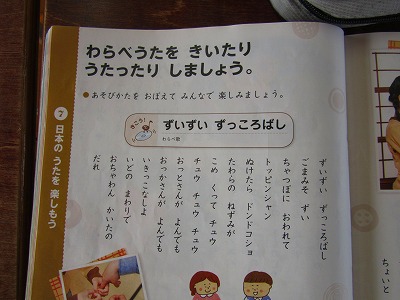 わらべうたを きいたり
うたったり しましょう。
●あそびかたを おぼえて みんなで 楽しみましょう。
きこう!
ずいずい ずっころばし
わらべ歌
ずいずい ずっころばし
ごまみそ ずい
ちゃつぼに おわれて
トッピンシャン
ぬけたら ドンドコショ
たわらの ねずみが
こめ くって チュウ
チュウ チュウ チュウ
おっとさんが よんでも
おっかさんが よんでも
いきっこなしよ
いどの まわりで
おちゃわん かいたの
だれ
7 日本の うたを 楽しもう
ちょいと